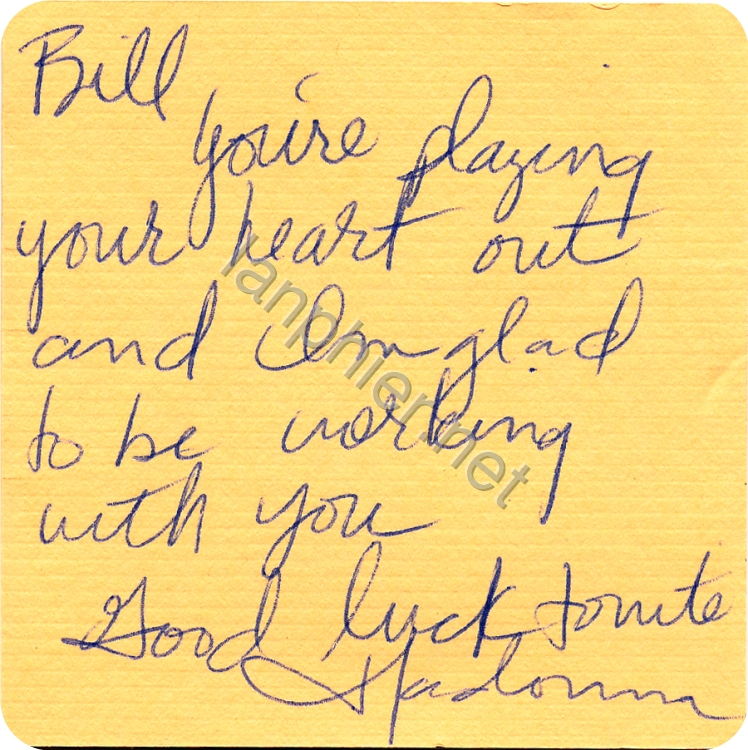 Bill
you're playing
your heart out
and I'm glad
to be working
with you
Good luck tonite
Madonna
lanphier.net